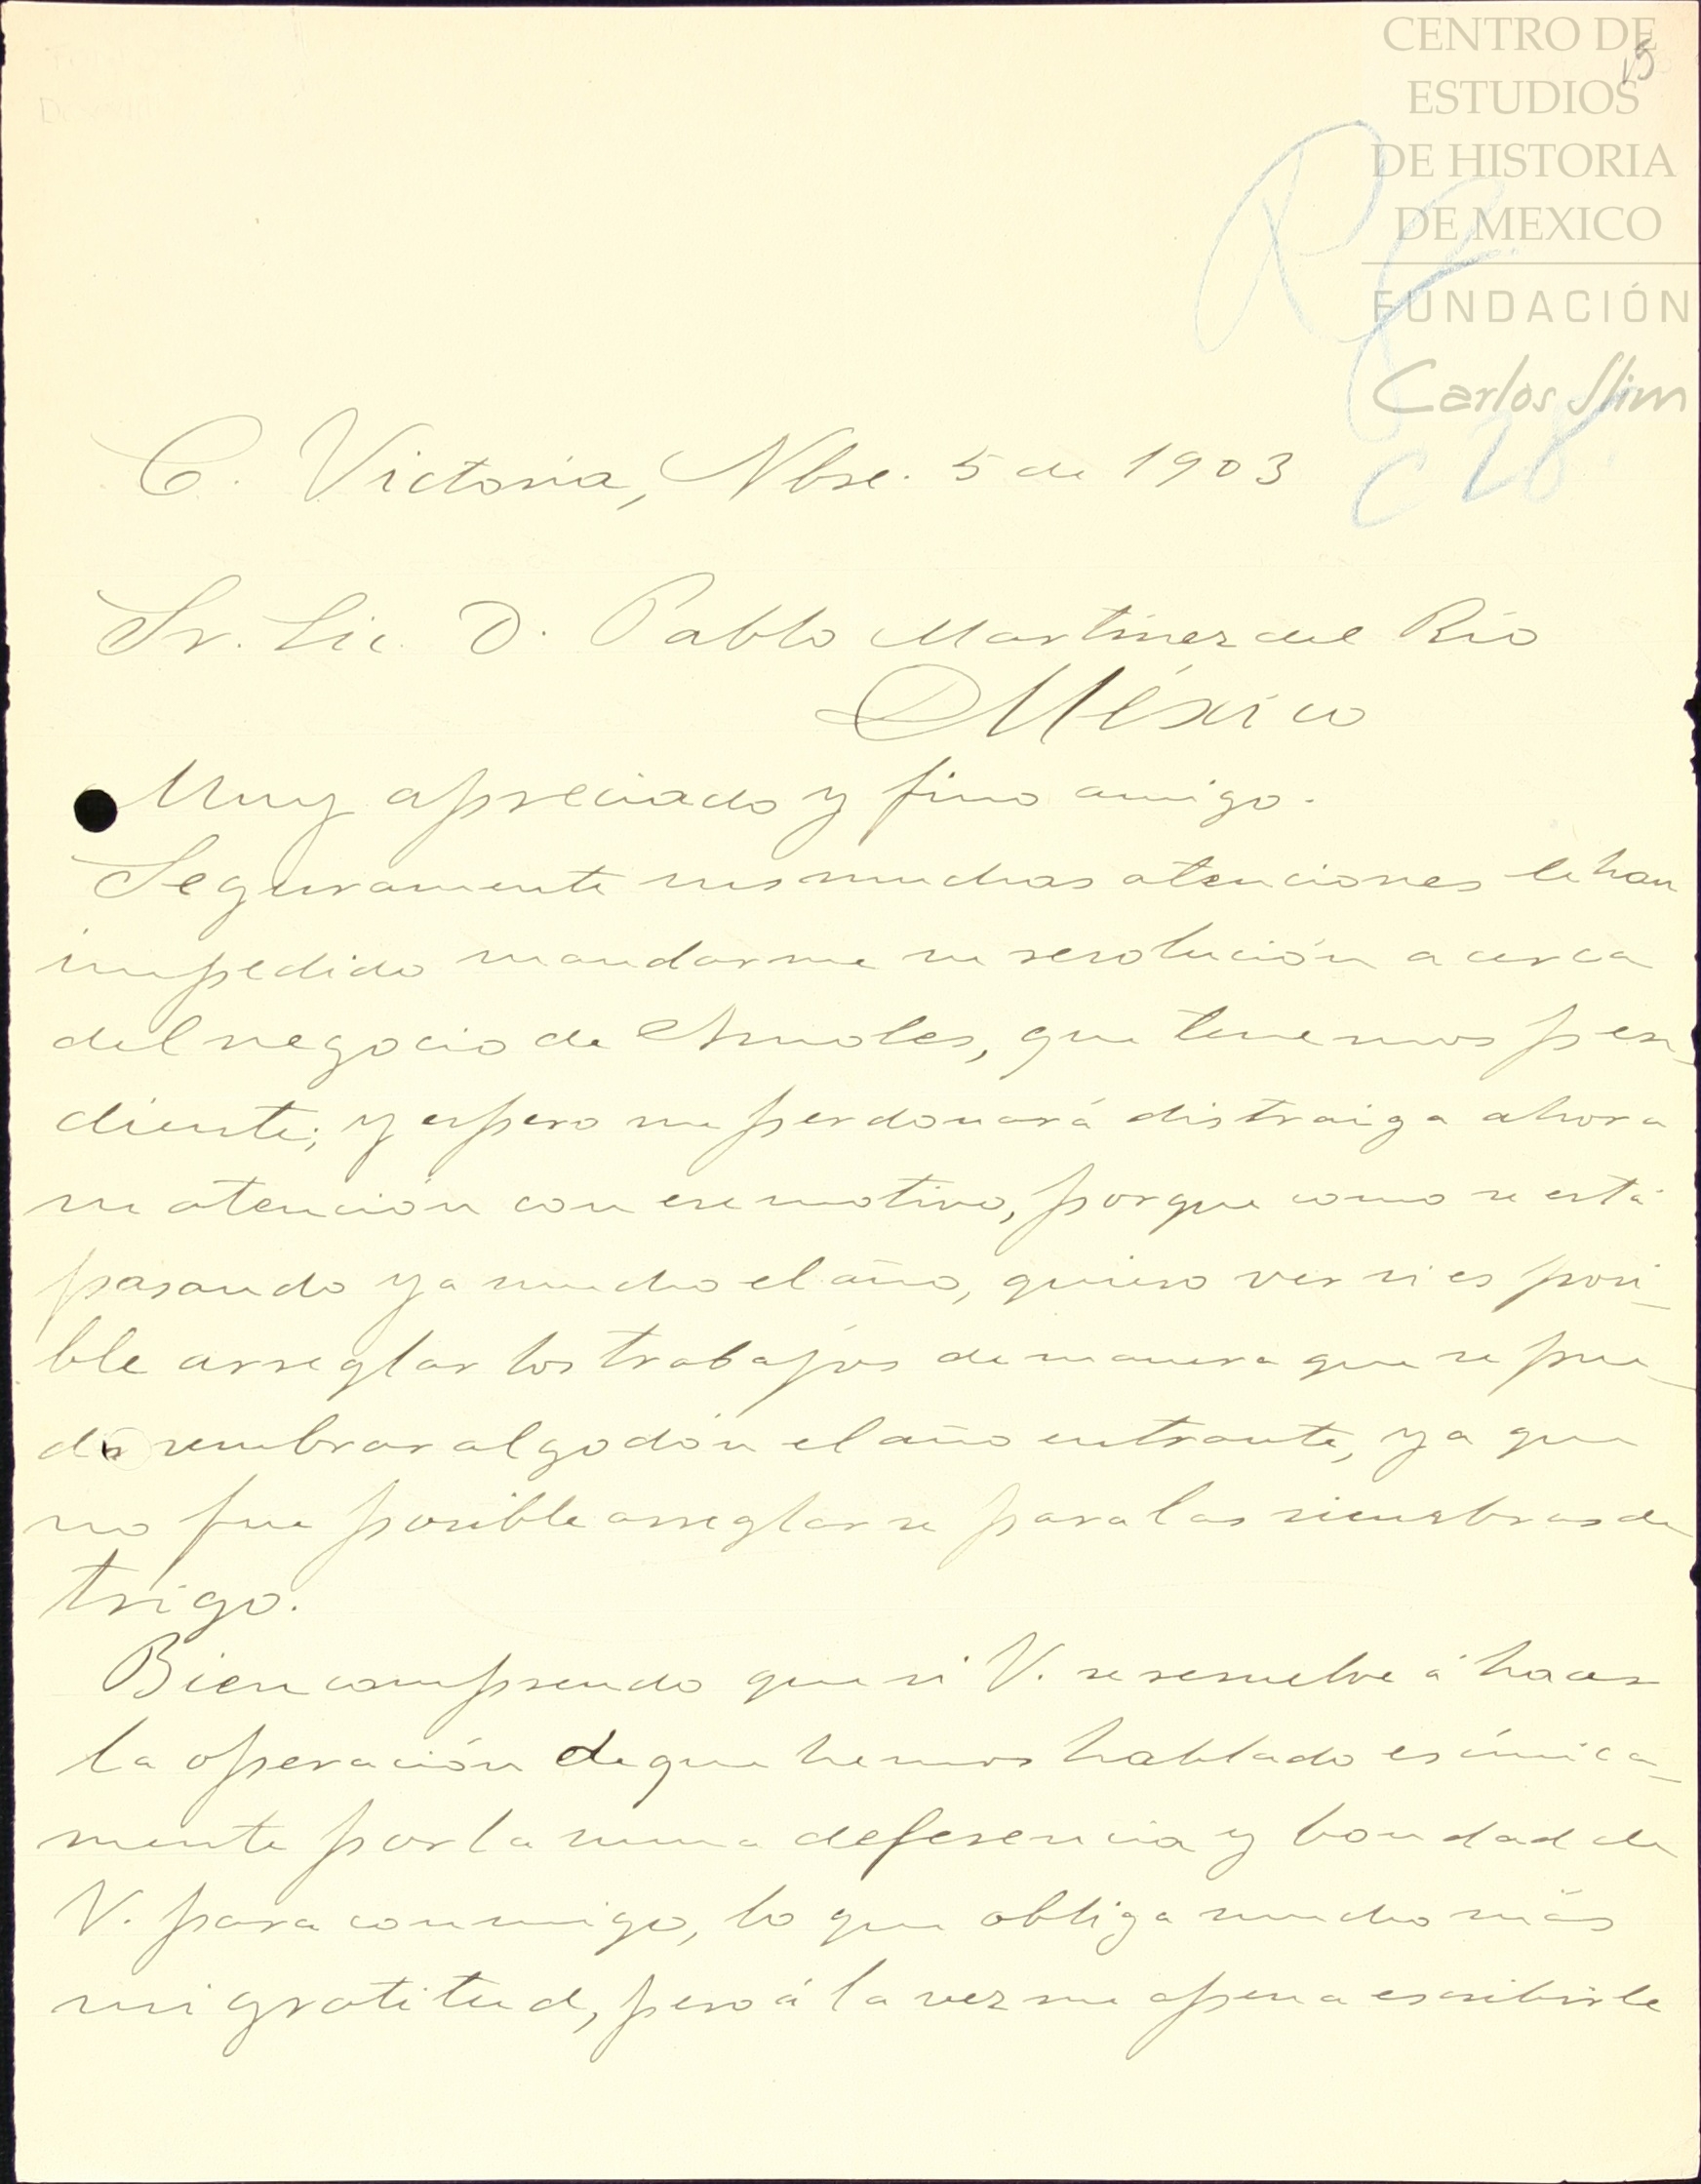 CENTRO DE
ESTUDIOS
DE HISTORIA
DE MEXICO
FUNDACIÓN
Carlos Slim
15
C 28.
C. Victoria, Nbre. 5 de 1903
Sr. Lic. D. Pablo Martínez del Río
México
Muy apreciado y fino amigo.
Seguramente sus muchas atenciones le han
impedido mandarme su resolución acerca
del negocio de Chmoles, que tenemos pen_
diente; y espero me perdonará distraiga ahora
su atención con ese motivo, porque como se está
pasando ya mucho el año, quiero ver si es posi_
ble arreglar los trabajos de manera que se pue_
da sembrar algodón el año entrante, ya que
no fue posible arreglarse para las siembras de
trigo.
Bien comprendo que si V. se resuelve á hacer
la operación de que hemos hablado es única_
mente por la suma deferencia y bondad de
V. para conmigo, lo que obliga mucho más
mi gratitud, pero á la vez me apena escribirle